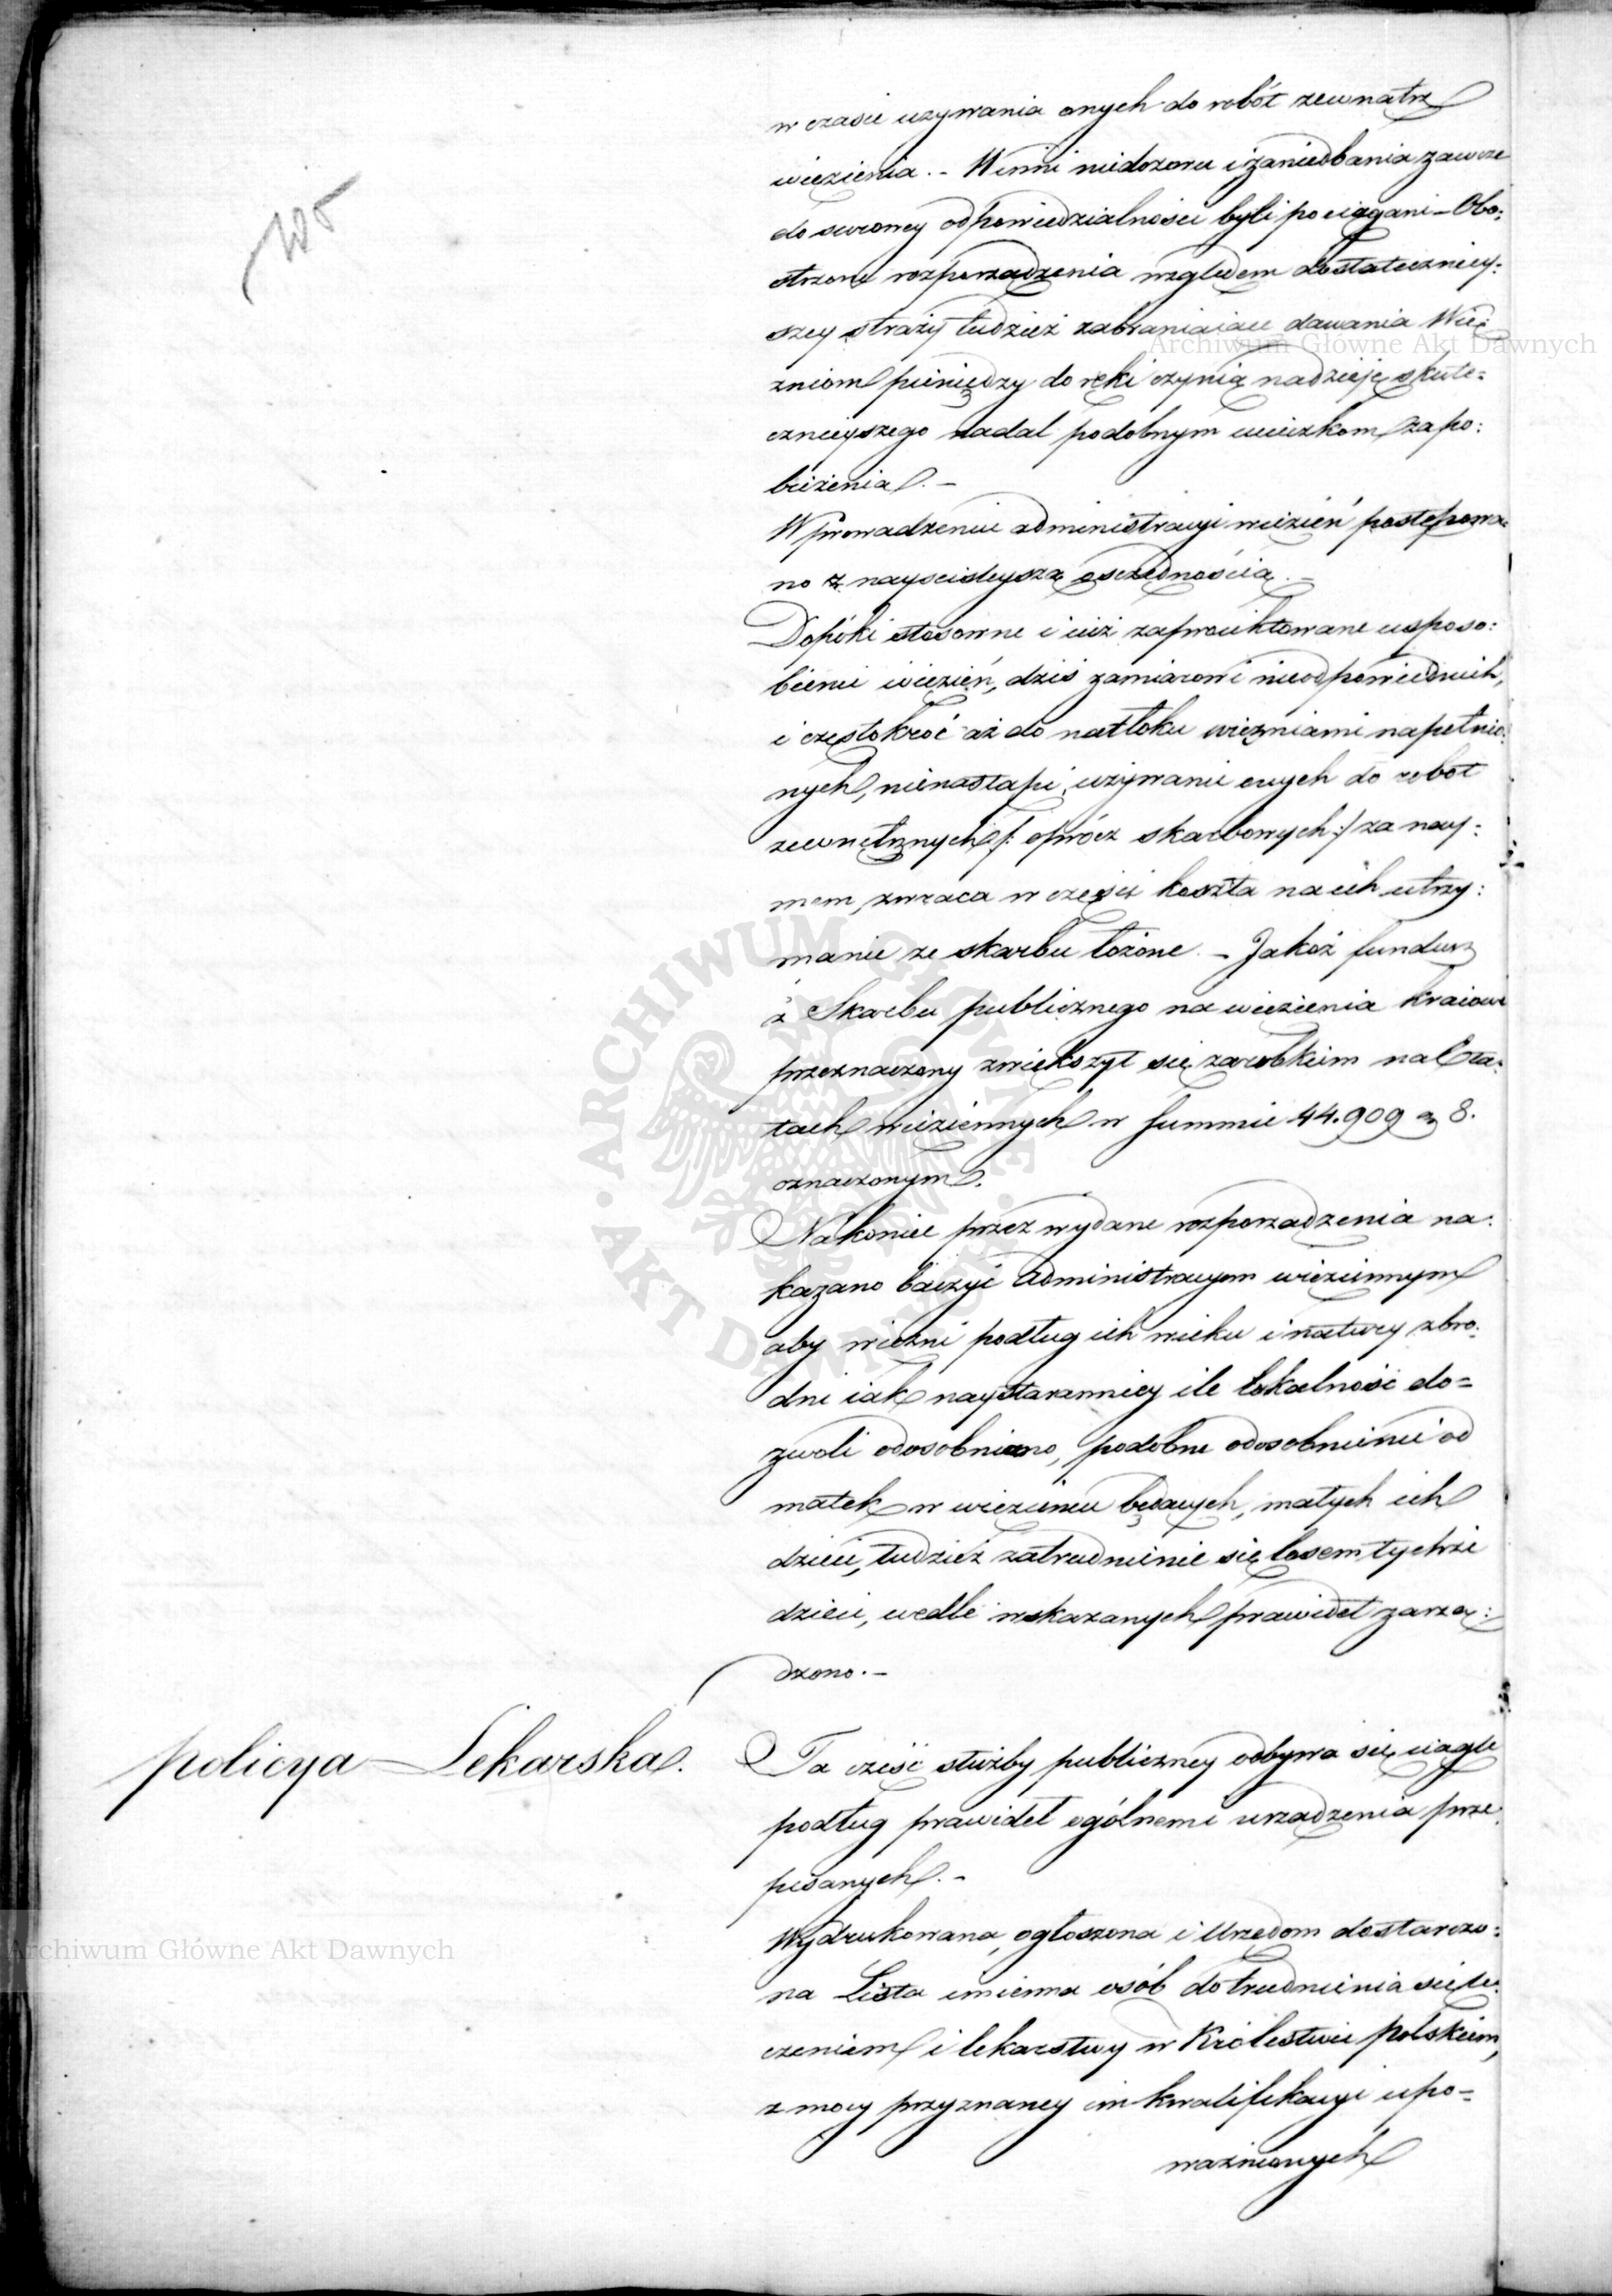 w czasie używania onych do robót zewnątrz
więzienia. - Winni niedozoru i zaniedbania zawsze
do surowey odpowiedzialności byli pociągani - Obo:
strzone rozporządzenia względem dostateczniey:
szey straży tudzież zabraniaiące dawania Wię:
zniom pieniędzy do ręki czynią nadzieję skute:
cznieyszego nadal podobnym ucieczkom zapo:
bieżenia. -
W prowadzeniu administracyi więzień postępowa:
no z nayściśleyszą oszczędnością. -
Dopóki stosowne i iuż zaproiektowane usposo:
bienie więzień, dziś zamiarowi nieodpowiednich,
i częstokroć aż do natłoku więzniami napełnio:
nych, nienastąpi, używanie onych do robót
zewnętrznych /: oprócz skarbowych :/ za nay:
mem, zwraca w części koszta na ich utrzy:
manie ze skarbu łożone. - Jakoż fundusz
z Skarbu publicznego na więzienia kraiowe
przeznaczony zwiększył się zarobkiem na Eta:
tach więziennych w summie 44.909 gr 8.
oznaczonym.
Nakoniec przez wydane rozporządzenia na:
kazano baczyć Administracyom więziennym
aby więzni podług ich wieku i natury zbro:
dni iak naystaranniey ile lokalność do=
zwoli odosobniano, podobne odosobnienie od
matek w więzieniu będących, małych ich
dzieci, tudzież zatrudnienie się losem tychże
dzieci, wedle wskazanych prawideł zarzą:
dzono. -
policya Lekarska.
Ta część służby publiczney odbywa się ciągle
podług prawideł ogólnemi urządzenia prze:
pisanych. -
Wydrukowana, ogłoszona i Urzędom dostarczo:
na Lista imienna osób do trudnienia się le:
czeniem i lekarstwy w Królestwie polskiem,
z mocy przyznaney im kwalifikacyi upo=
ważnionych
Archiwum Główne Akt Dawnych
Archiwum Główne Akt Dawnych
ARCHIWUM GŁÓWNE AKT DAWNYCH